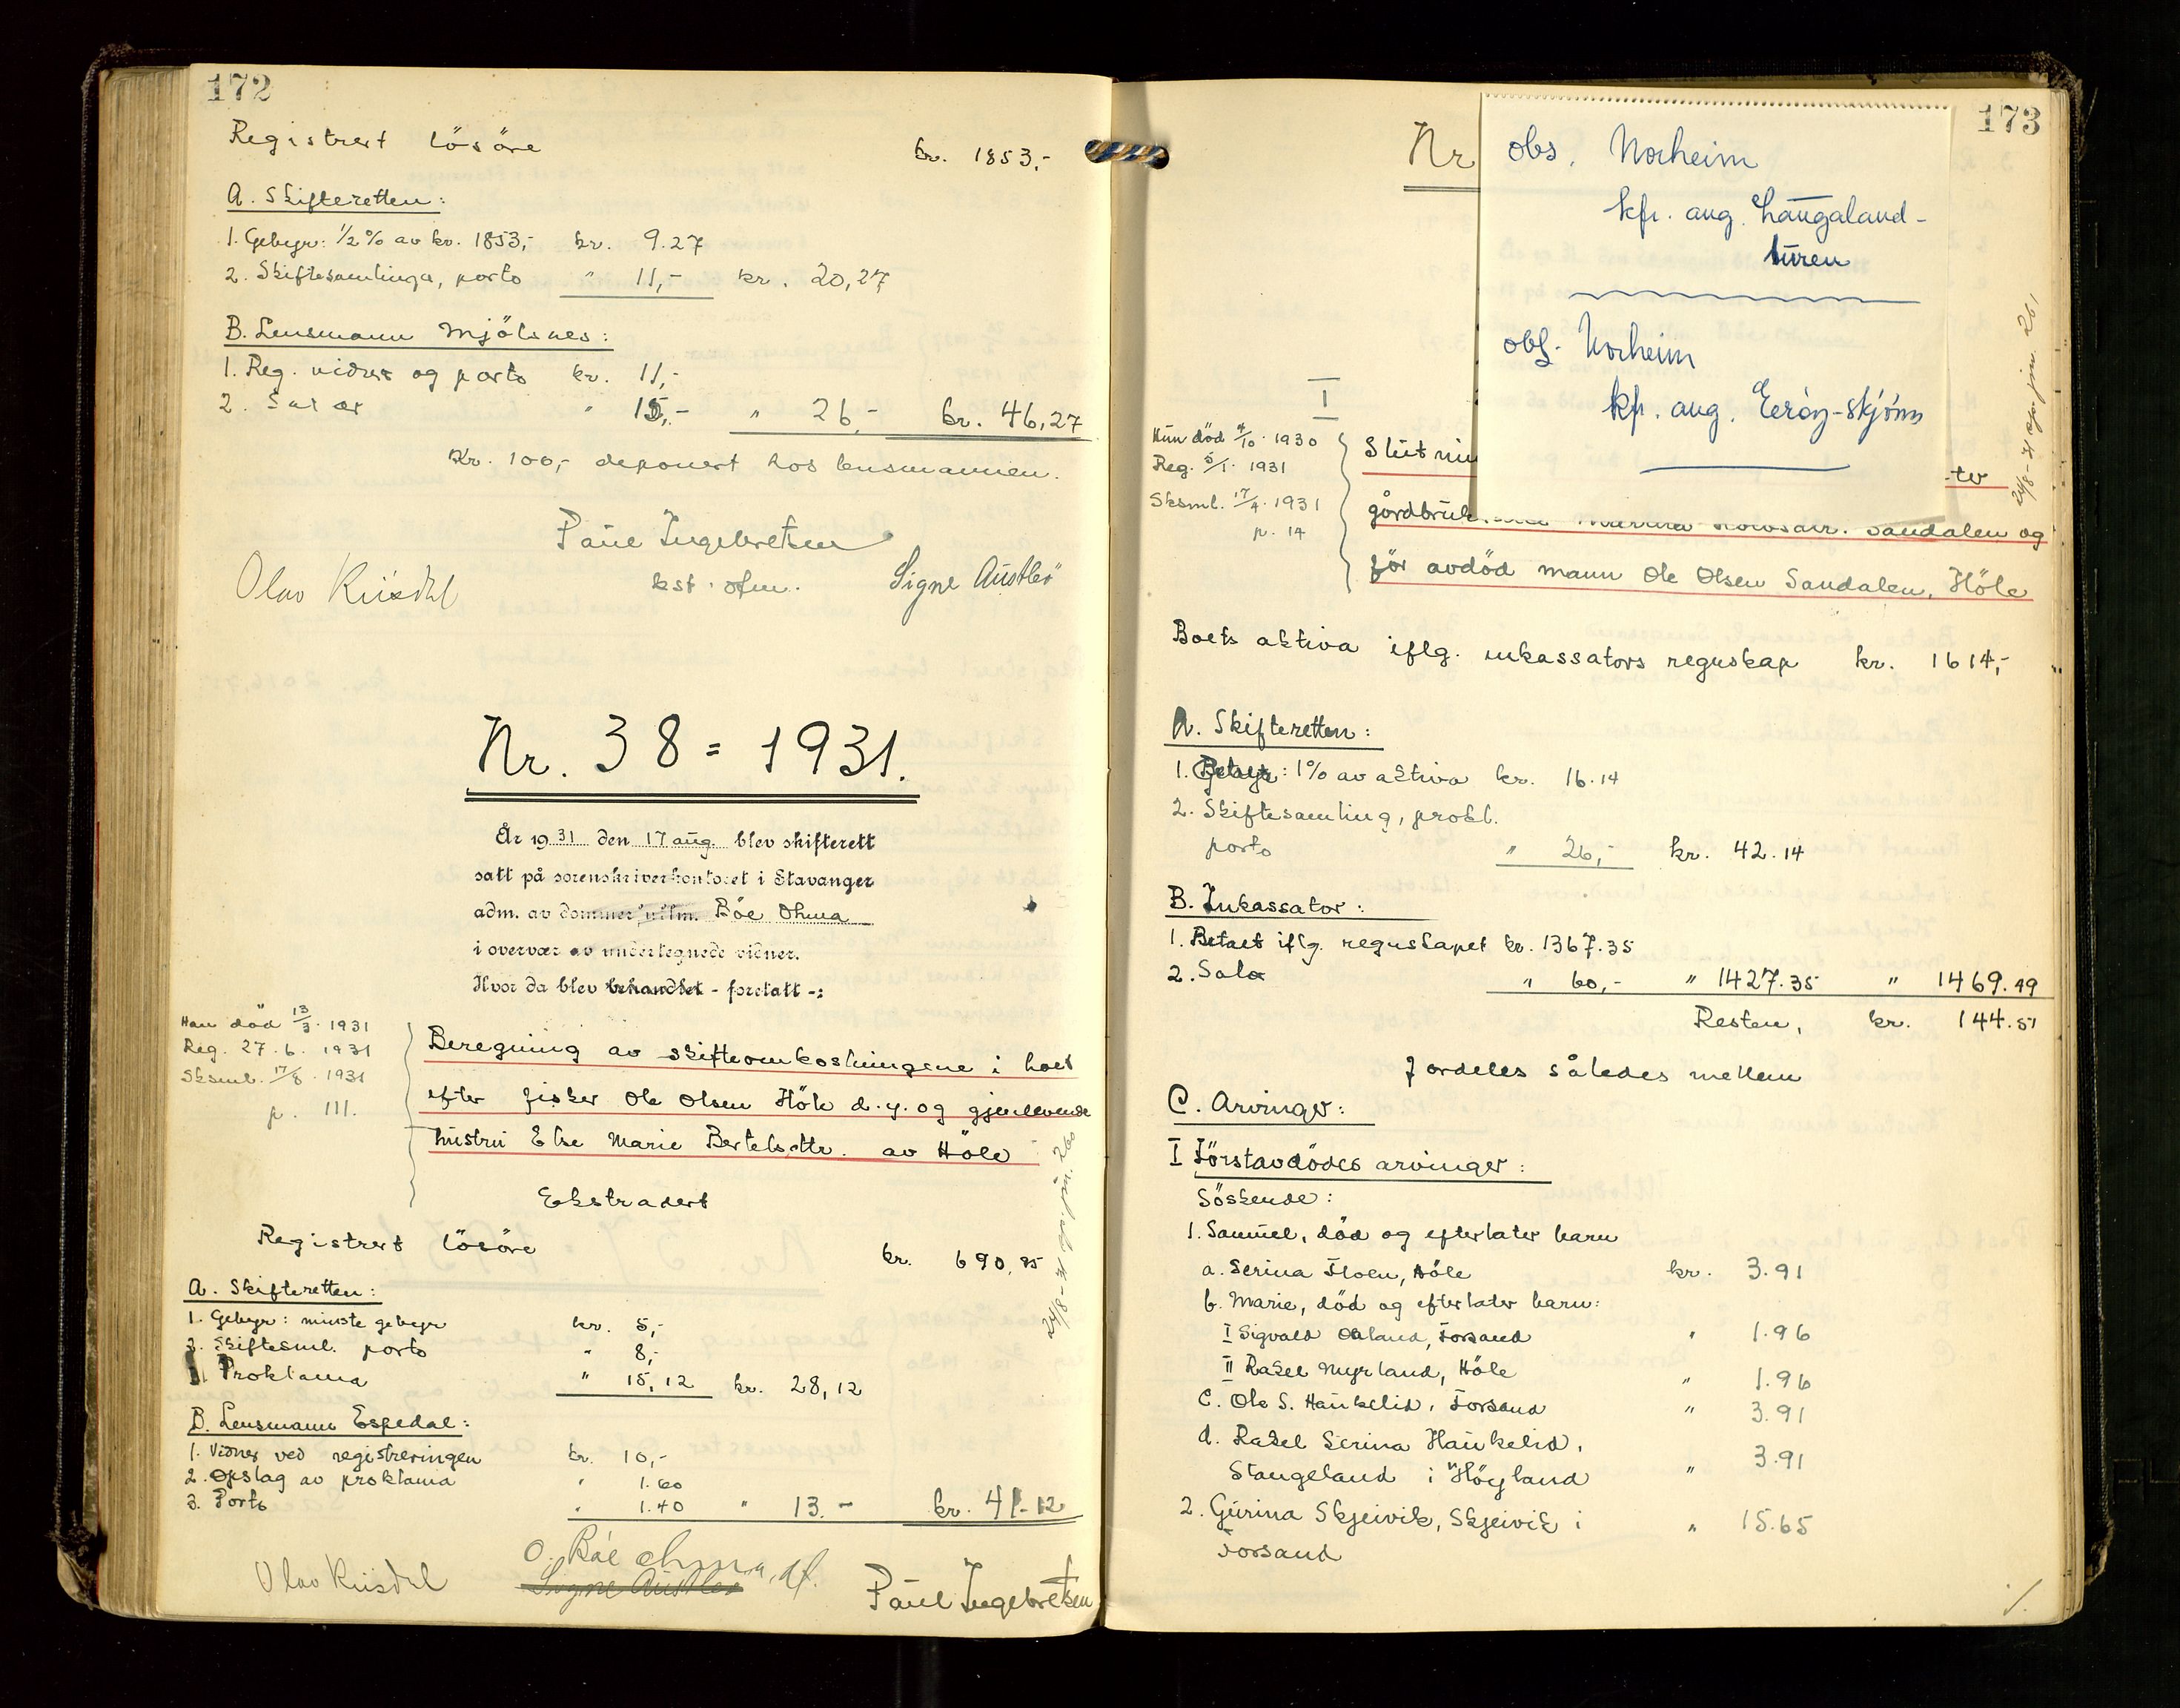 172
Registrert lösöre kr. 1853,-
A. Skifteretten:
1. Gebyr: 1/2% av kr. 1853,- kr. 9.27
2. Skiftesamlinga, porto " 11,- kr. 20,27
B. Lensmann Mjölsnes:
1. Reg. vidner og porto kr. 11,-
2. Salær " 15,- " 26,- kr. 46,27
Kr. 100,- deponert hos lensmannen.
Paul Ingebretsen
Olav Riisdal kst. ofm. Signe Austbö
Nr. 38 = 1931.
År 1931 den 17 aug. blev skifterett
satt på sorenskriverkontoret i Stavanger
adm. av dommerfullm. Böe Ohma
i overvær av undertegnede vidner.
Hvor da blev behandlet - foretatt -:
Han död 13/3. 1931
Reg. 27.6. 1931
Sksml. 17/8. 1931
p. 111.
Beregning av skifteomkostningene i boet
efter fisker Ole Olsen Höle d.y. og gjenlevende
hustru Else Marie Bertelsdtr. av Höle
24/8-31 gp. jnr. 260
Ekstradert
Registrert lösöre kr. 690,85
A. Skifteretten:
1. Gebyr: minste gebyr kr. 5,-
2. Skiftesml. porto " 8,-
Proklama " 15,12 kr. 28,12
B. Lensmann Espedal:
1. Vidner ved registreringen kr. 10,-
2. Opslag av proklama " 1.60
3. Porto " 1.40 " 13.- kr. 41.12
O. Böe Ohma, df.
Olav Riisdal Signe Austbö Paul Ingebretsen
173
Nr
obs. Norheim
kfr. ang. Langaland-
turen
obs. Norheim
kfr. ang. Eeröy-skjönn
24/8-31 gp. jnr. 261
I
Hun död 4/10. 1930
Reg. 5/1. 1931
Sksml. 17/4. 1931
p. 14
Slutnin -ter
gårdbruk Sandalen og
för avdöd mann Ole Olsen Sandalen, Höle
Boets aktiva iflg. inkassators regnskap kr. 1614,-
A. Skifteretten:
1. Gebyr: 1% av aktiva kr. 16.14
2. Skiftesamling, prokl.
porto " 26,- kr. 42.14
B. Inkassator:
1. Betalt iflg. regnskapet kr. 1367.35
2. Salær " 60,- " 1427.35 " 1469.49
Resten, kr. 144.51
fordeles således mellem
C. Arvinger:
I Förstavdödes arvinger:
Söskende:
1. Samuel, död og efterlater barn
a. Serina Floen, Höle kr. 3.91
b. Marie, död og efterlater barn:
I Sigvald Oaland, Forsand " 1.96
II Rakel Myrland, Höle " 1.96
c. Ole S. Haukelid, Forsand " 3.91
d. Rakel Serina Haukelid,
Stangeland i Höyland " 3.91
2. Gurina Skjeivik, Skjeivik i " 15.65
Forsand
./.